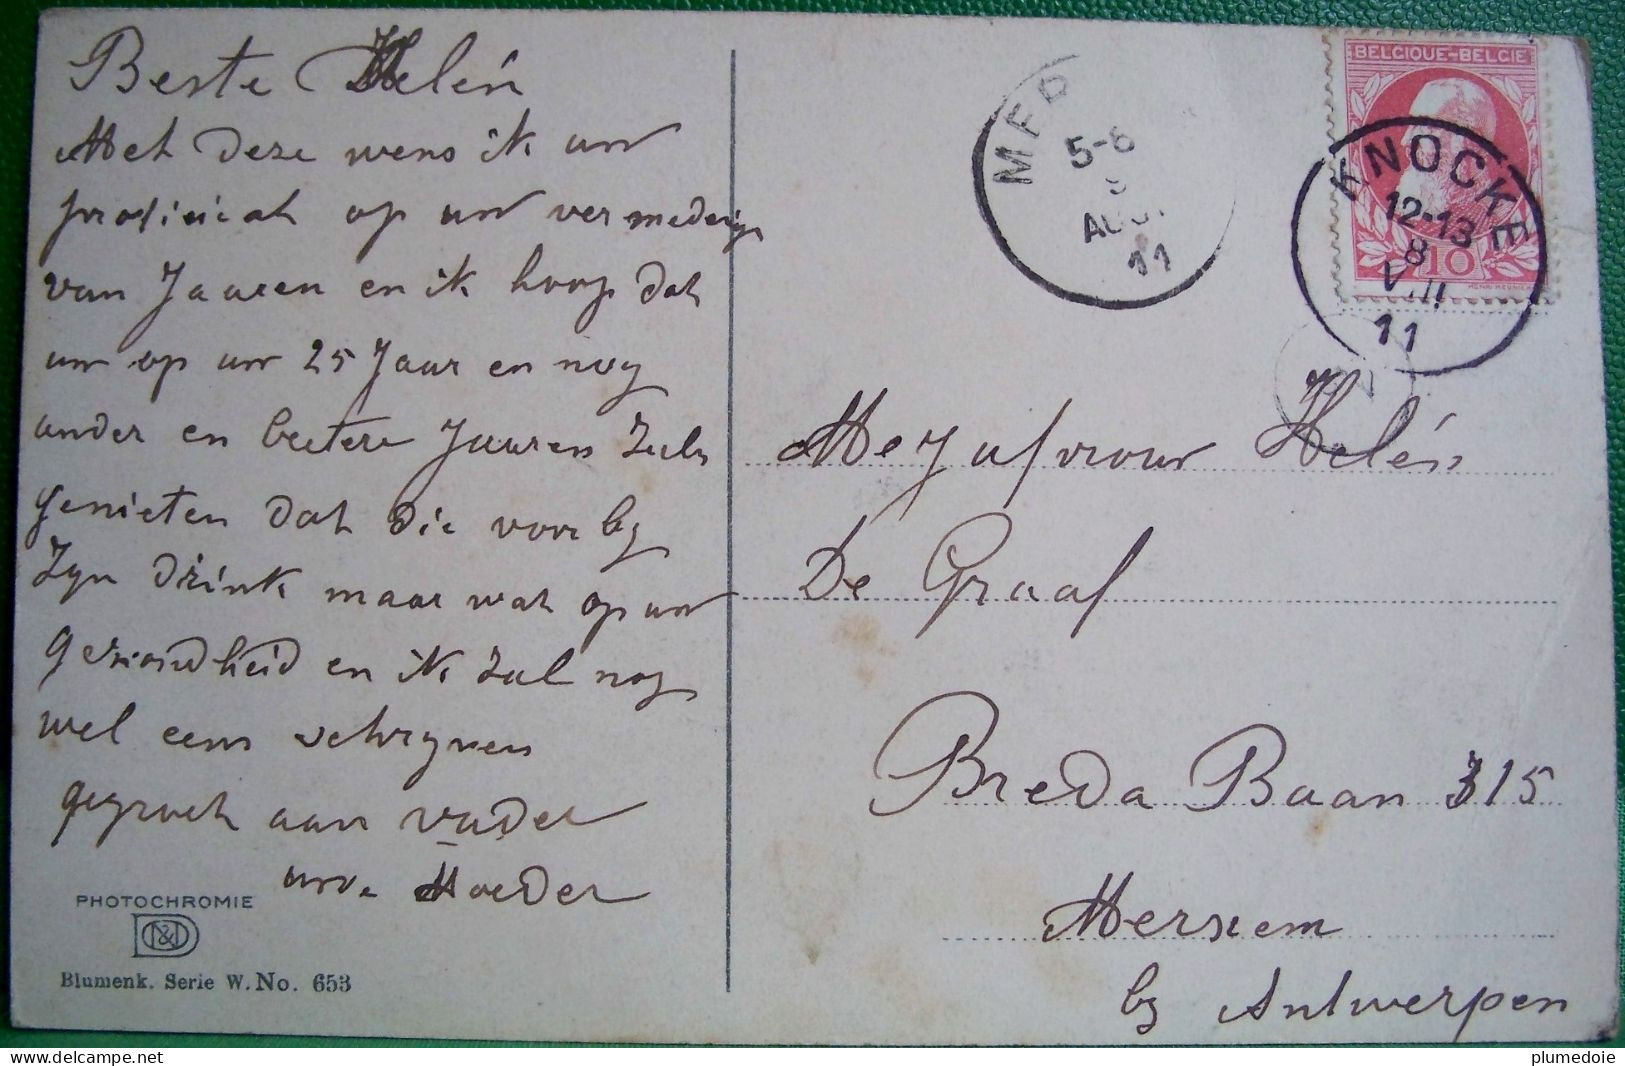 Beste Helén
Met deze wens ik uw
proficiat op uw vermedering
van Jaaren en ik hoop dat
uw op uw 25 Jaar en nog
ander en beetere Jaaren Zult
genieten dat die voorby
Zyn drink maar wat op uw
gezondheid en ik zal nog
wel eens schryven
gegroet aan vader
uwe Moeder
PHOTOCHROMIE
Blumenk. Serie W. No. 653
5-6
AUG.
11
BELGIQUE-BELGIE
10
HENRI MEUNIER
KNOCKE
12-13
8
VIII
11
Mejufvrouw Helén
De Graaf
Breda Baan 315
Merxem
by Antwerpen
plumedoie